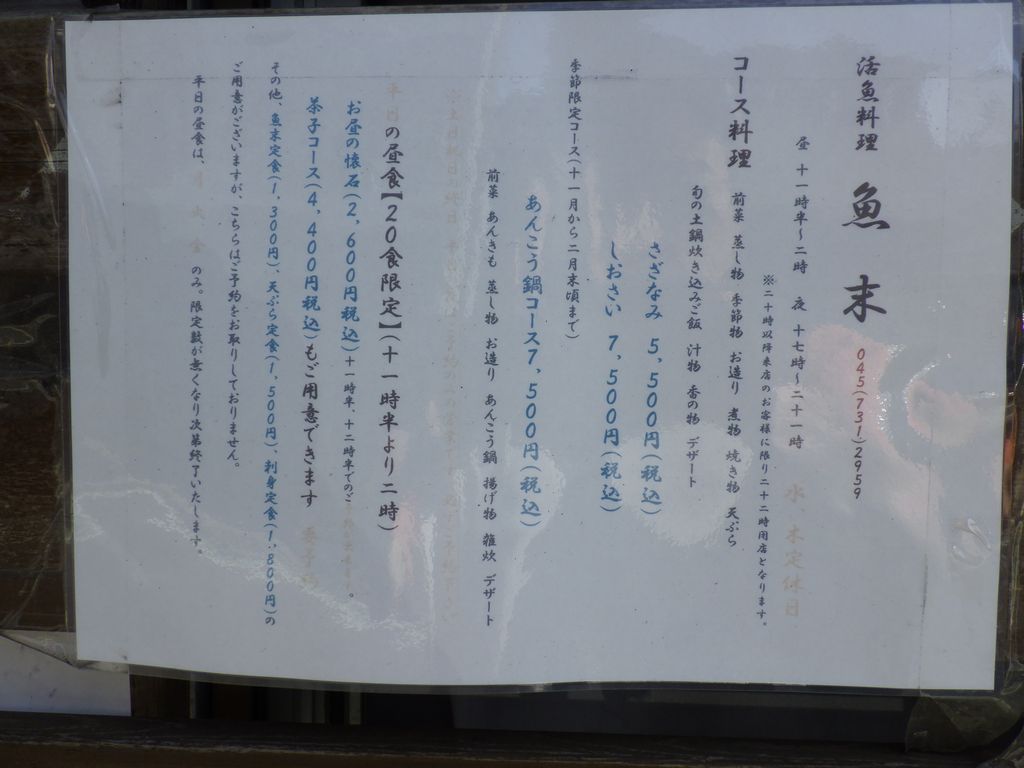 活魚料理 魚末 045(731)2959
昼 十一時半～二時 夜 十七時～二十一時 水、木定休日
※二十時以降来店のお客様に限り二十二時閉店となります。
コース料理 前菜 蒸し物 季節物 お造り 煮物 焼き物 天ぷら
旬の土鍋炊き込みご飯 汁物 香の物 デザート
さざなみ 5,500円(税込)
しおさい 7,500円(税込)
季節限定コース(十一月から二月末頃まで)
あんこう鍋コース7,500円(税込)
前菜 あんきも 蒸し物 お造り あんこう鍋 揚げ物 雑炊 デザート
平日の昼食【20食限定】(十一時半より二時)
お昼の懐石(2,600円税込)十一時半、十二時半でのご
茶子コース(4,400円税込)もご用意できます
その他、魚末定食(1,300円)、天ぷら定食(1,500円)、刺身定食(1,800円)の
ご用意がございますが、こちらはご予約をお取りしておりません。
平日の昼食は、月 火 金 のみ。限定数が無くなり次第終了いたします。